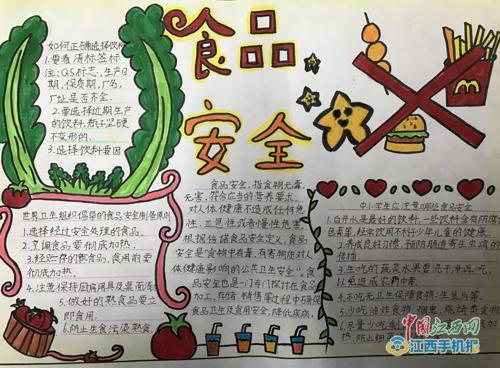 食品
安全
如何正确选择饮料
1.要看清标签标
注:QS标志,生产日
期,保质期,厂名,
厂址是否齐全.
2.要选择近期生产
的饮料,瓶子坚硬
不变形的.
3.选择饮料要因
世界卫生组织倡导的食品安全制备原则
1.选择经过安全处理的食品。
2.烹调食品要彻底加热.
3.经贮存的熟食品,食用前要
彻底加热.
4.注意保持厨房用具及
5.做好的熟食品要立
即食用.
6.防止生食污染熟食.
食品安全,指食物无毒、
无害,符合应当的营养要求,
对人体健康不造成任何急
性、亚急性或者慢性危害。
根据倍诺食品安全定义,食品安全
是"食物中有毒、有害物质对人
体健康影响的公共卫生安全",食
品安全也是一门专门探讨在食品
加工、存储、销售等过程中确保食
品卫生及食用安全,降低疾病
中小学生应注意哪些食品安全
1.白开水是最好的饮料,一些饮料含有防腐、
色素等,经常饮用不利于少年儿童的健康.
2.养成良好习惯,预防肠道寄生虫病的
传播.
3.生吃的蔬菜水果要洗干净再吃,
以免造成农药中毒.
4.不吃无卫生保障的食物:生蛋片等.
5.少吃油炸食物、烟熏、烧烤类食物
中国江西网
江西手机报